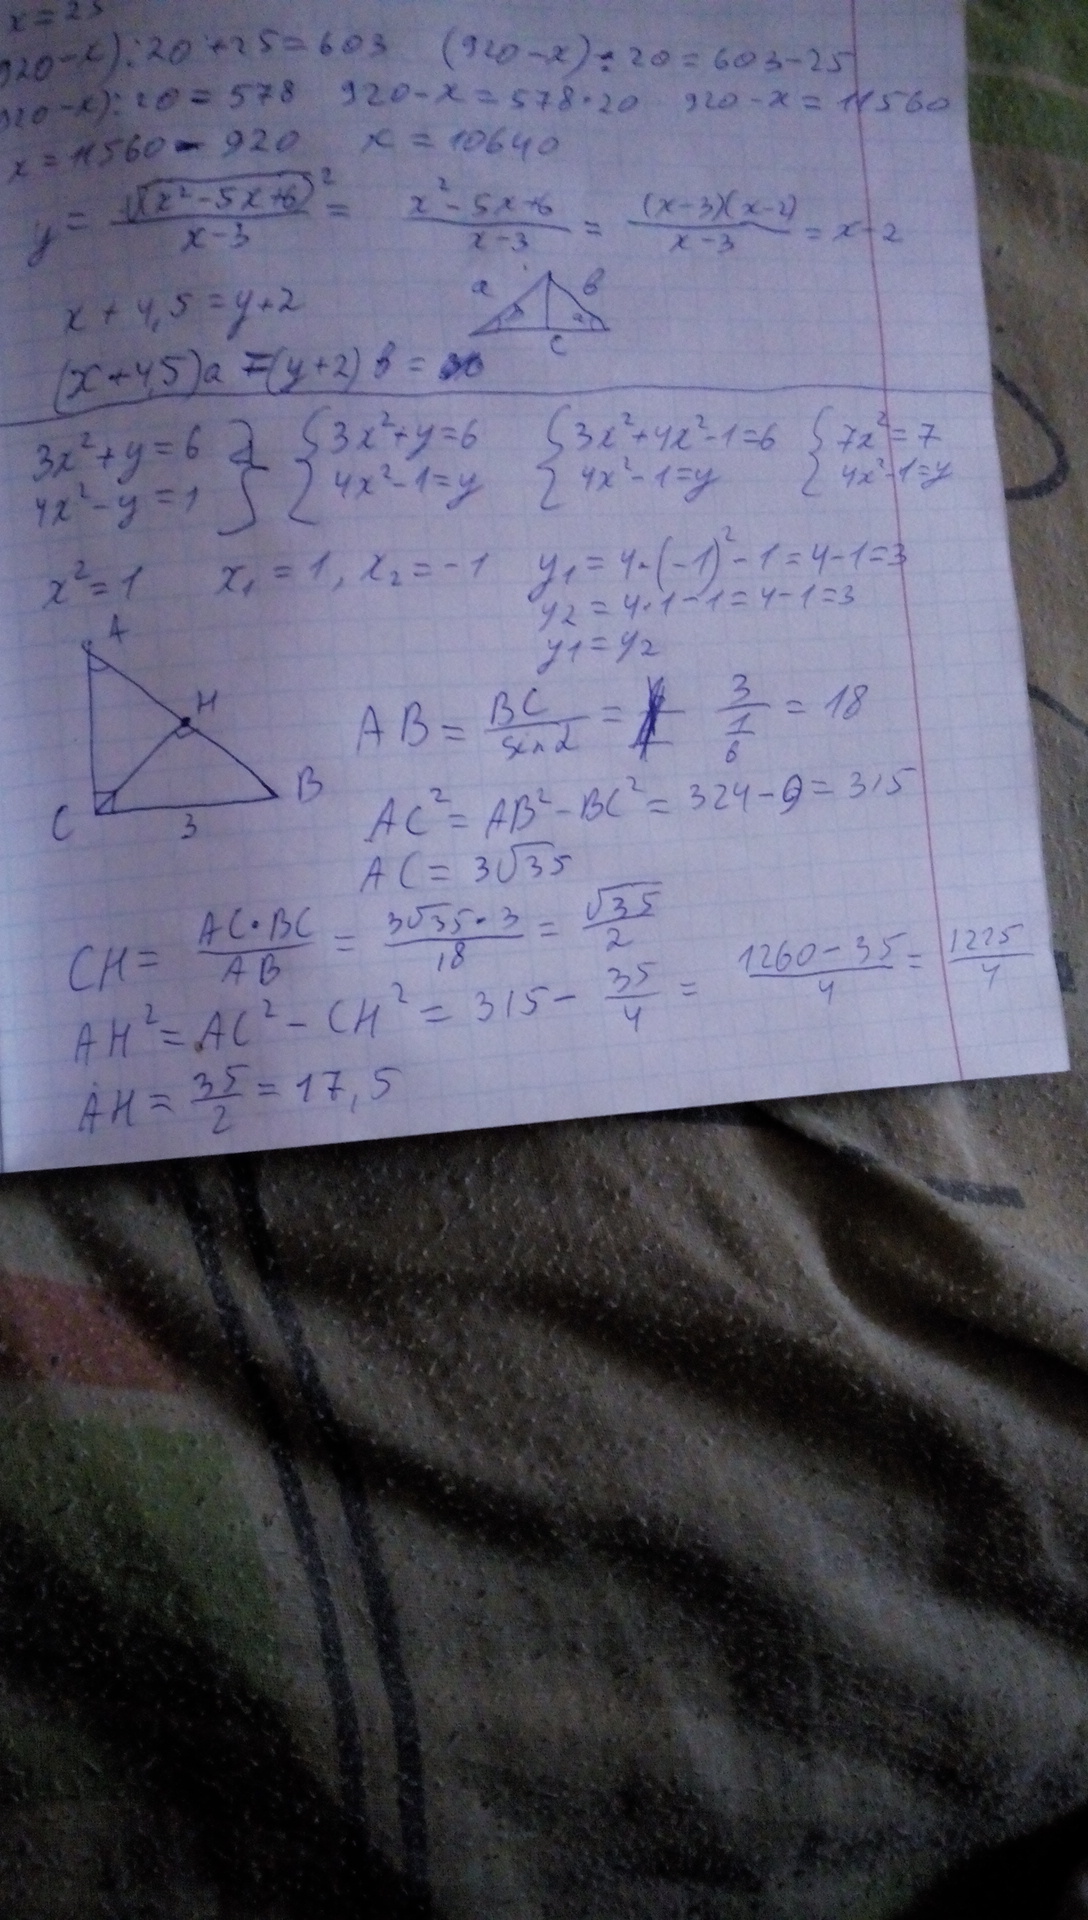 x=25
920-x):20+25=603 (920-x):20=603-25
920-x):20=578 920-x=578·20 920-x=11560
x=11560-920 x=10640
y= √(x²-5x+6)² / x-3 = x²-5x+6 / x-3 = (x-3)(x-2) / x-3 = x-2
x+4,5=y+2
a b
c
(x+4,5)a=(y+2)b=
3x²+y=6 } {3x²+y=6 {3x²+4x²-1=6 {7x²=7
4x²-y=1 } {4x²-1=y {4x²-1=y {4x²-1=y
x²=1 x₁=1, x₂=-1 y₁=4·(-1)²-1=4-1=3
y₂=4·1-1=4-1=3
y₁=y₂
A
H
B
C
3
AB= BC / sin α = 3 / 1/6 = 18
AC²=AB²-BC²=324-9=315
AC=3√35
CH= AC·BC / AB = 3√35·3 / 18 = √35 / 2
AH²=AC²-CH²=315- 35/4 = 1260-35 / 4 = 1225 / 4
AH= 35/2 =17,5